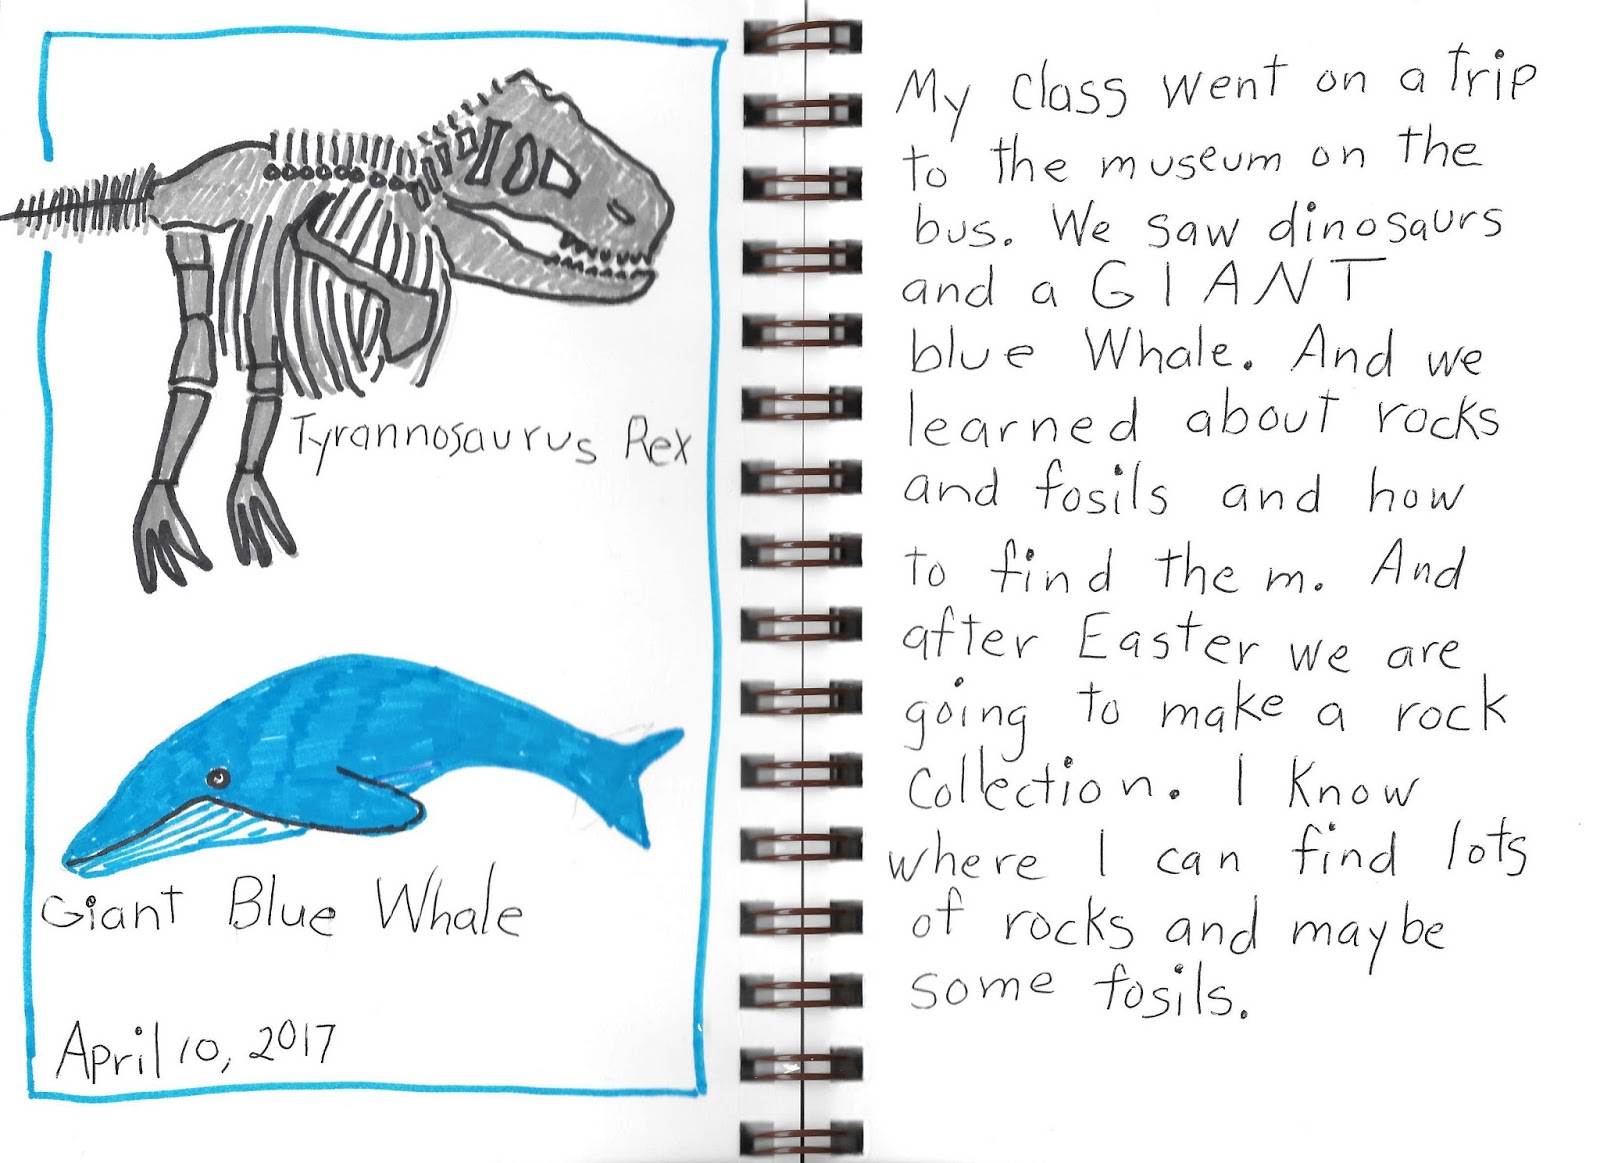 Tyrannosaurus Rex
Giant Blue Whale
April 10, 2017
My class went on a trip
to the museum on the
bus. We saw dinosaurs
and a GIANT
blue Whale. And we
learned about rocks
and fosils and how
to find them. And
after Easter we are
going to make a rock
collection. I know
where I can find lots
of rocks and maybe
some fosils.